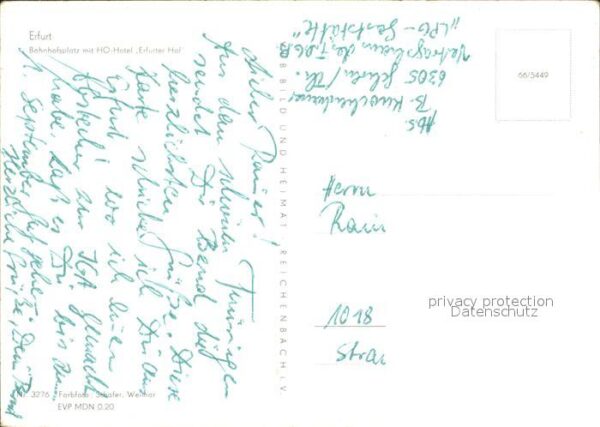 Erfurt
Bahnhofsplatz mit HO-Hotel „Erfurter Hof“
Lieber Rainer!
Aus dem schönen Thüringen
sendet Dir Bernd die
herzlichsten Grüße. Diese
Karte schicke ich Dir aus
Erfurt, wo ich einen
Abstecher zur IGA gemacht
habe. Laß es Dir bis zum
1. September gut gehen!
Herzliche Grüße, Dein Bernd
3276 Farbfoto: Schäfer, Weimar
EVP MDN 0.20
BILD UND HEIMAT REICHENBACH I. V.
Abs.
B.
6305 /Th.
Vertragsheim des FDGB
„LPG-Gaststätte“
66/5449
Herrn
Rain
1018
Stra
privacy protection
Datenschutz